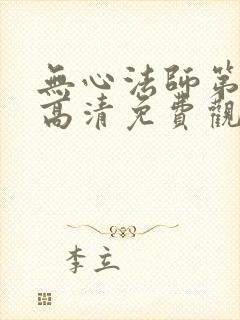 無心法師第
高清免費觀
李立